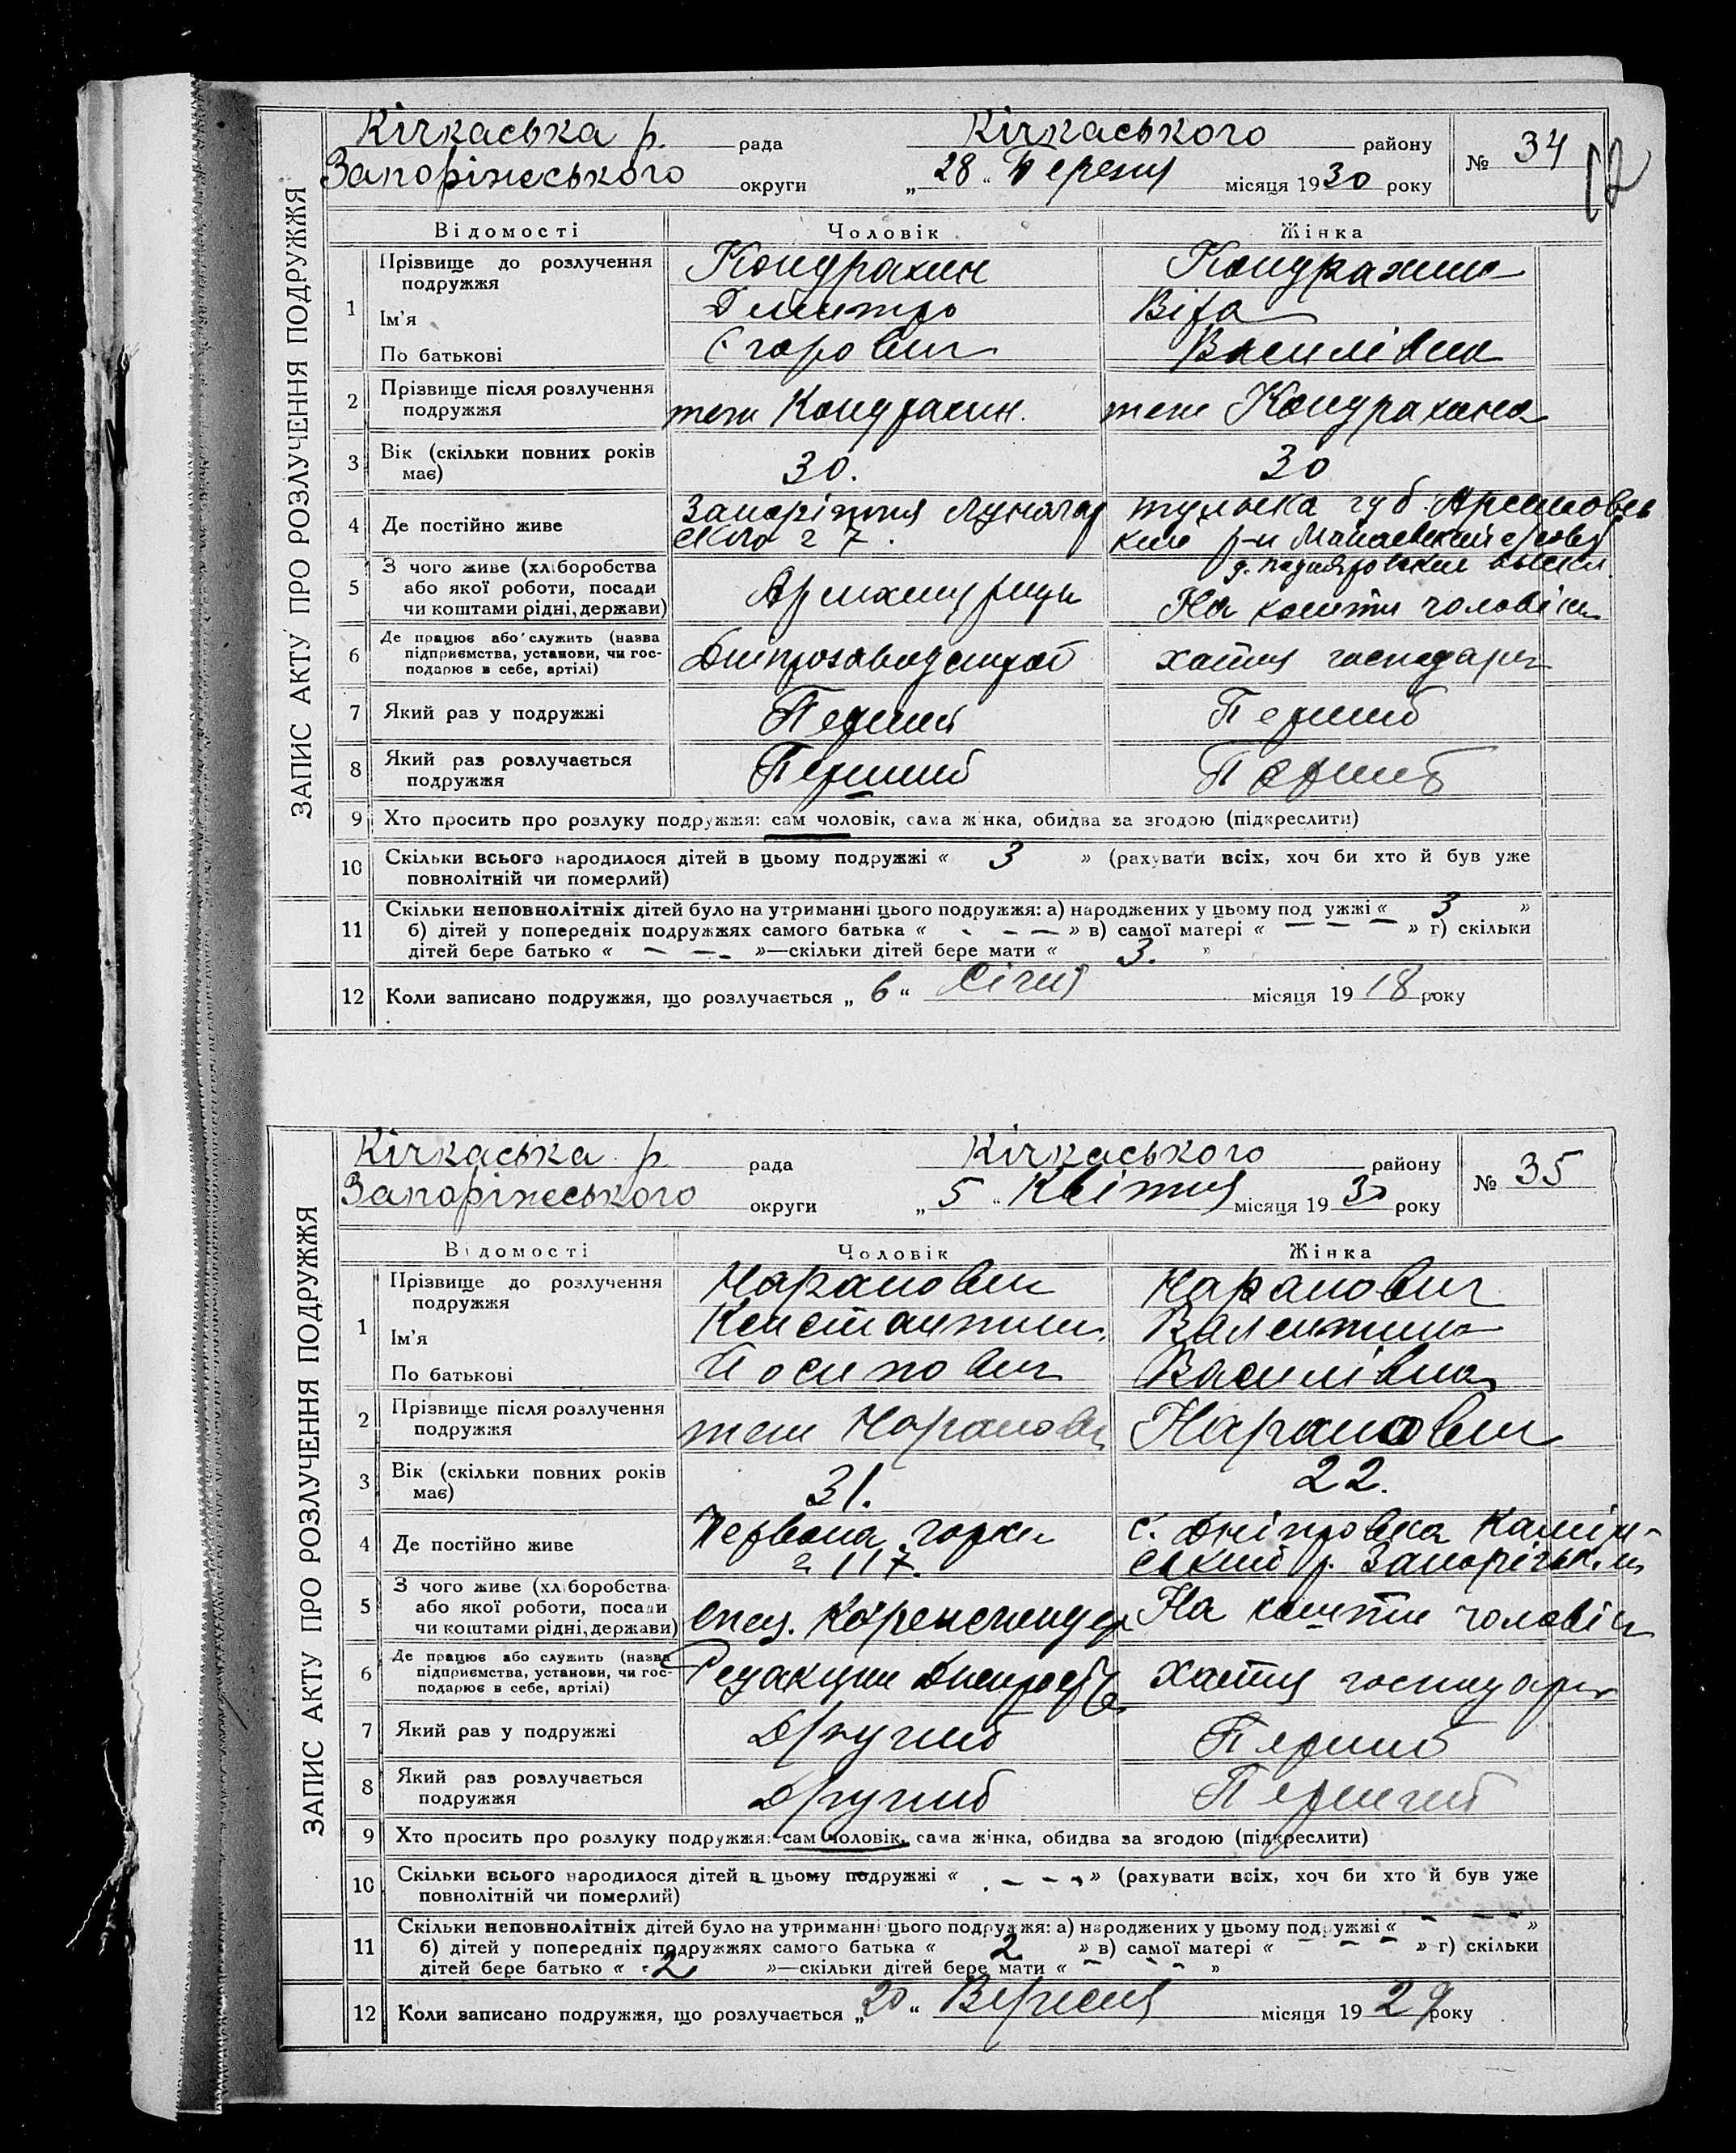 Кічкаська р. рада Кічкаського району № 34
Запоріжського округи „28“ Березня місяця 1930 року
17
ЗАПИС АКТУ ПРО РОЗЛУЧЕННЯ ПОДРУЖЖЯ
Відомості Чоловік Жінка
1 Прізвище до розлучення подружжя Кондрахин Кондрахина
Ім'я Дмитро Віра
По батькові Єгорович Василівна
2 Прізвище після розлучення подружжя теж Кондрахин. теж Кондрахина
3 Вік (скільки повних років має) 30. 30
4 Де постійно живе Запоріжжя Луначар
ского 27. тульска губ.
р-н
5 З чого живе (хліборобства
або якої роботи, посади
чи коштами рідні, держави) На кошти чоловіка
6 Де працює або служить (назва
підприємства, установи, чи гос-
подарює в себе, артілі) Дніпрозаводстрой хатня господарка
7 Який раз у подружжі Перший Перший
8 Який раз розлучається
подружжя Перший Перший
9 Хто просить про розлуку подружжя: сам чоловік, сама жінка, обидва за згодою (підкреслити)
10 Скільки всього народилося дітей в цьому подружжі « 3 » (рахувати всіх, хоч би хто й був уже
повнолітній чи померлий)
11 Скільки неповнолітніх дітей було на утриманні цього подружжя: а) народжених у цьому подружжі « 3 »
б) дітей у попередніх подружжях самого батька « - - - » в) самої матері « - - - » г) скільки
дітей бере батько « - - - »—скільки дітей бере мати « 3. »
12 Коли записано подружжя, що розлучається „6“ Січня місяця 1918 року
Кічкаська р. рада Кічкаського району № 35
Запоріжського округи „5“ Квітня місяця 1930 року
ЗАПИС АКТУ ПРО РОЗЛУЧЕННЯ ПОДРУЖЖЯ
Відомості Чоловік Жінка
1 Прізвище до розлучення
подружжя Наранович Наранович
Ім'я Константин Валентина
По батькові Йосипович Василівна
2 Прізвище після розлучення
подружжя теж Наранович Наранович
3 Вік (скільки повних років
має) 31. 22.
4 Де постійно живе Червона горка
117. с. Дніпровка Камін-
ський р. Запорізьк.
5 З чого живе (хліборобства
або якої роботи, посади
чи коштами рідні, держави) спец. Кореспондер На кошти чоловіка
6 Де працює або служить (назва
підприємства, установи, чи гос-
подарює в себе, артілі) Редакции хатня господарка
7 Який раз у подружжі Другий Перший
8 Який раз розлучається
подружжя Другий Перший
9 Хто просить про розлуку подружжя: сам чоловік, сама жінка, обидва за згодою (підкреслити)
10 Скільки всього народилося дітей в цьому подружжі « - - - » (рахувати всіх, хоч би хто й був уже
повнолітній чи померлий)
11 Скільки неповнолітніх дітей було на утриманні цього подружжя: а) народжених у цьому подружжі « - - - »
б) дітей у попередніх подружжях самого батька « 2 » в) самої матері « - - - » г) скільки
дітей бере батько « 2 »—скільки дітей бере мати « - - - »
12 Коли записано подружжя, що розлучається „20“ Вересня місяця 1929 року